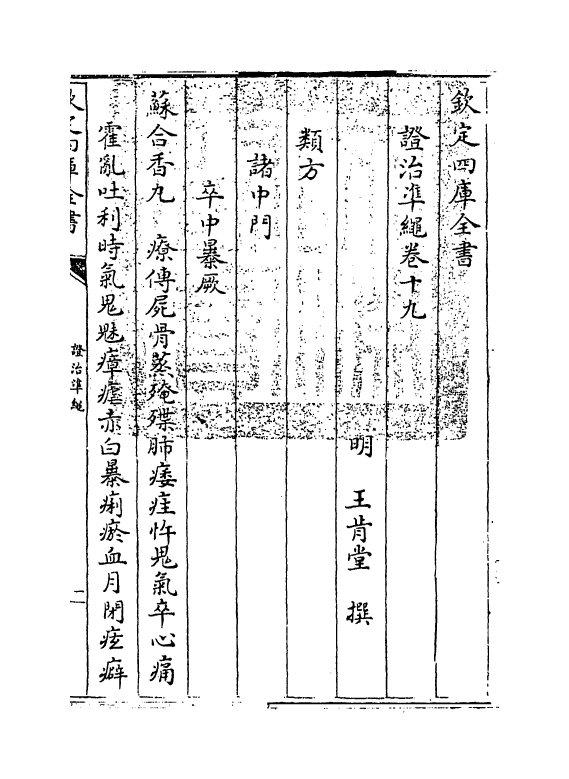 欽定四庫全書
證治準繩卷十九
明 王肯堂 撰
類方
諸中門
卒中暴厥
蘇合香丸 療傳屍骨蒸殗殜肺痿疰忤鬼氣卒心痛
霍亂吐利時氣鬼魅瘴瘧赤白暴痢瘀血月閉痃癖
欽定四庫全書
證治準繩
二